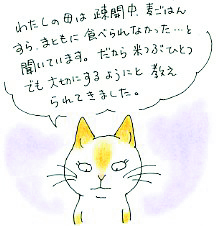 わたしの母は疎開中、麦ごはん
すら、まともに食べられなかった…と
聞いています。だから米つぶひとつ
でも大切にするようにと教え
られてきました。